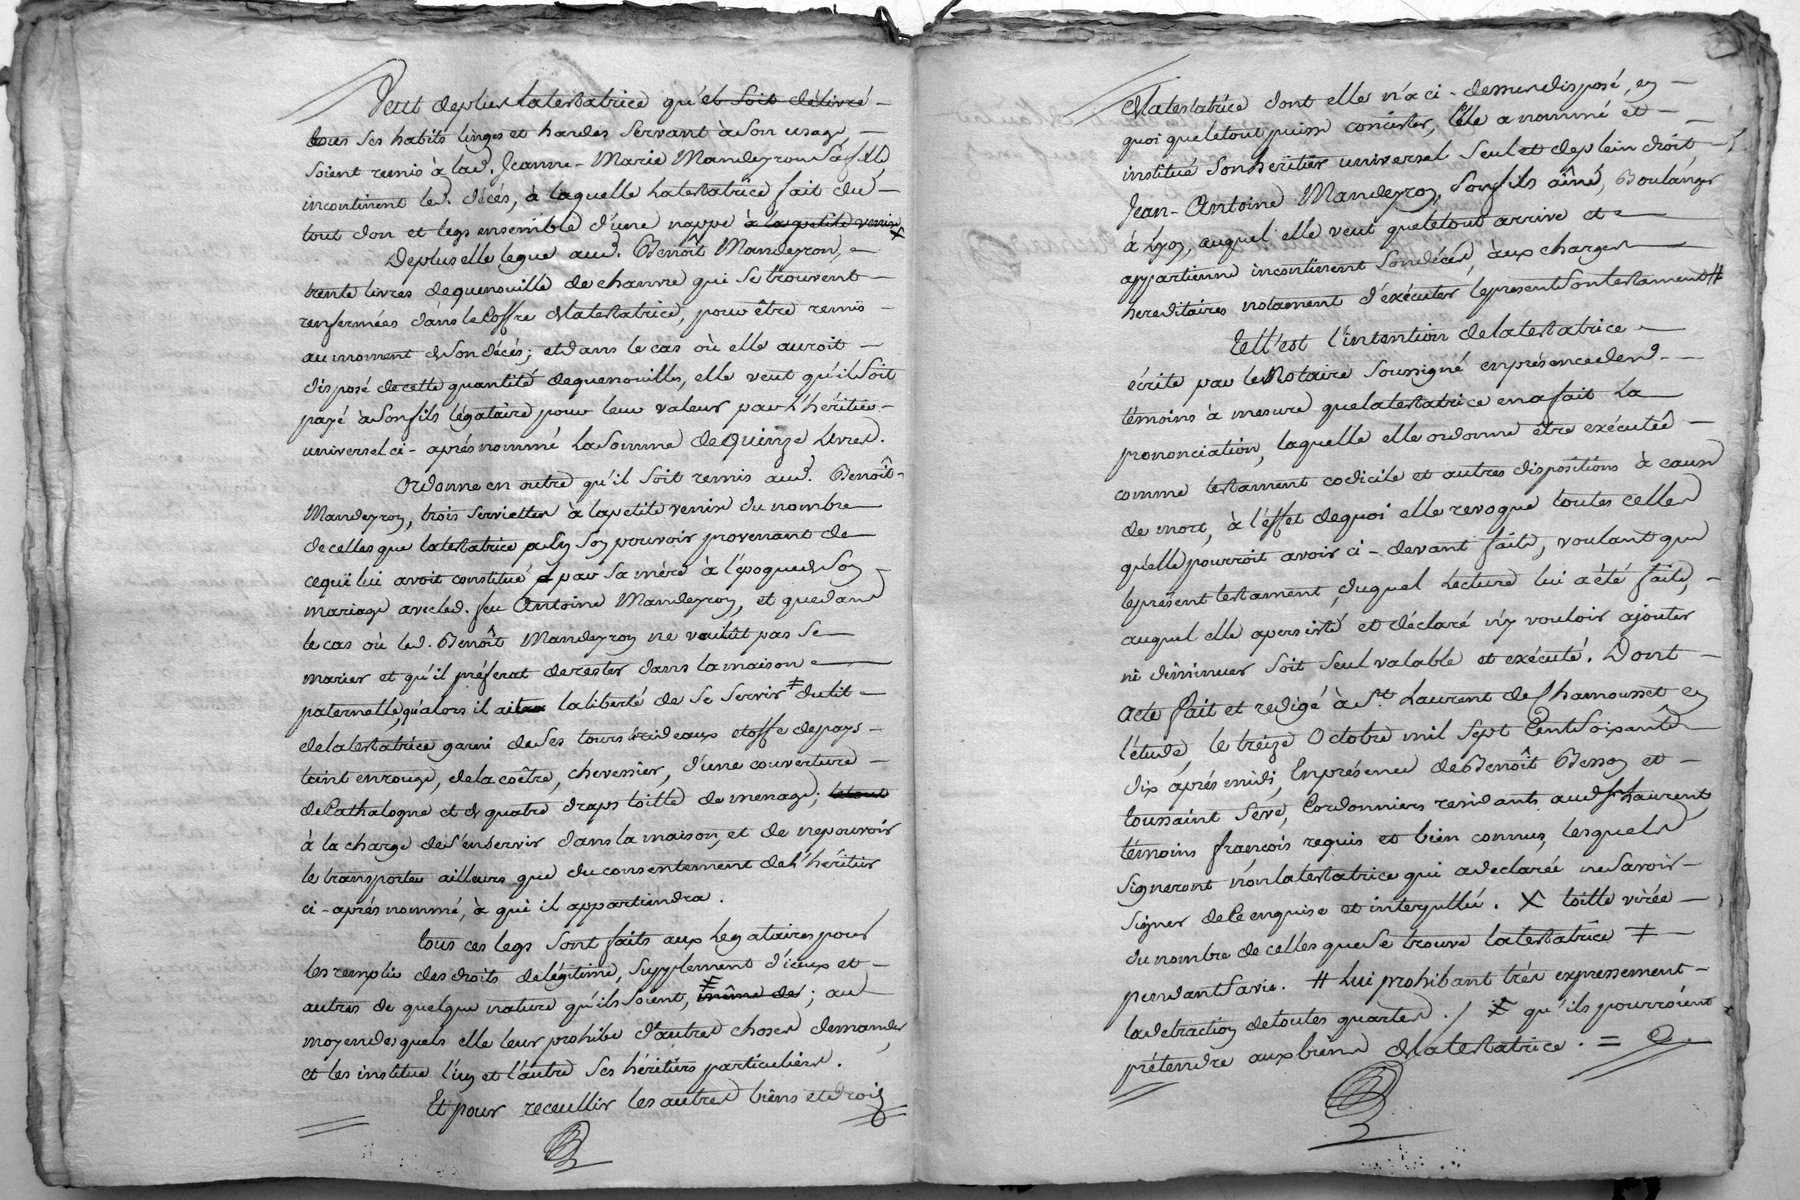 Veut deplus latestatrice qu'et soit délivré -
tous ses habits linges et hardes servant à son usage, -
soient remis à lad. Jeanne-Marie Mandeyron sa fille
incontinent led. décès, à laquelle latestatrice fait du -
tout don et legs ensemble d'une nappe à la petite venise X
Deplus elle legue aud. Benoît Mandeyron, -
trente livres dequenouille de chanvre qui se trouvent -
renfermées dans le Coffre de latestatrice, pour être remis -
au moment de son décés; et dans le cas où elle auroit -
disposé de cette quantité dequenouilles, elle veut qu'il soit
payé à son fils légataire pour leur valeur par l'héritier -
universel ci-aprés nommé la somme de Quinze Livres.
Ordonne en outre qu'il soit remis aud. Benoît -
Mandeyron, trois serviettes à lapetite venise du nombre
de celles que latestatrice a en son pouvoir provenant de
cequi lui avoit constitué par sa mère à l'époque de son -
mariage avec led. feu Antoine Mandeyron, et que dans
le cas où led. Benoît Mandeyron ne voulût pas se
marier et qu'il préferat de rester dans la maison
paternelle, qu'alors il ait la liberté de se servir ≠ du lit -
de latestatrice garni de ses tours rideaux etoffe de pays -
teint en rouge, de la coêtre, chevessier, d'une couverture -
de Cathalogne et de quatre draps toille de menage; le tout
à la charge de s'en servir dans la maison, et de ne pouvoir
le transporter ailleurs que du consentement de l'héritier
ci-aprés nommé, à qui il appartiendra.
tous ces legs sont faits aux Legataires pour
les remplir des droits de légitime, supplement d'iceux et -
autres de quelque nature qu'ils soient, ≠ même de; au
moyen desquels elle leur prohibe d'autres choses demander
et les institue l'un et l'autre ses héritiers particuliers.
Et pour receuillir les autres biens et droits
de latestatrice dont elle n'a ci-dessus disposé, en -
quoi que le tout puisse consister, Elle a nommé et -
institué son héritier universel seul et de plein droit
Jean-Antoine Mandeyron, son fils aîné, Boulanger
à Lyon, auquel elle veut que le tout arrive et
appartienne incontinent son décés, aux charges
hereditaires notament d'exécuter le present son testament #
telle est l'intention de la testatrice
écrite par le Notaire soussigné en présence des
témoins à mesure que latestatrice en a fait la
prononciation, laquelle elle ordonne être exécutée -
comme testament codicile et autres dispositions à cause
de mort, à l'effet de quoi elle revoque toutes celles
qu'elle pourroit avoir ci-devant faite, voulant que
le present testament, duquel Lecture lui a été faite, -
auquel elle a persisté et déclaré n'y vouloir ajouter
ni diminuer soit seul valable et exécuté. Dont -
Acte fait et redigé à St. Laurent de Chamousset en
l'étude, le treize Octobre mil Sept Cent Soixante
dix aprés midi, En présence de Benoît Besson et -
toussaint Seve, Cordonniers residants aud. St. Laurent
témoins françois requis et bien connus, lesquels
signeront non latestatrice qui a declarée ne savoir -
signer de Ce enquise et interpellée. X toille virée -
du nombre de celles que se trouve latestatrice ≠ -
pendant sa vie. # Lui prohibant trés expressement -
la detraction de toutes quartes. / ≠ qu'ils pourroient
prétendre aux biens de latestatrice. =